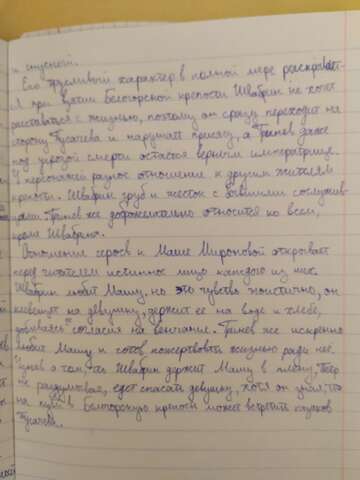 и гнусный.
Его трусливый характер в полной мере раскрывает-
ся при взятии Белогорской крепости. Швабрин не хочет
расставаться с жизнью, поэтому он сразу переходит на
сторону Пугачева и нарушает присягу, а Гринев даже
под угрозой смерти остается верным императрице.
У персонажей разное отношение к другим жителям
крепости. Швабрин груб и жесток с бывшими сослужив-
цами. Гринев же доброжелательно относится ко всем,
кроме Швабрина.
Отношение героев к Маше Мироновой открывает
перед читателем истинное лицо каждого из них.
Швабрин любит Машу, но это чувство эгоистично, он
клевещет на девушку, держит ее на воде и хлебе,
добиваясь согласия на венчание. Гринев же искренно
любит Машу и готов пожертвовать жизнью ради нее.
Узнав о том, что Швабрин держит Машу в плену, Петр
не раздумывая, едет спасать девушку, хотя он знал, что
на пути в Белогорскую крепость может встретить
Пугачева.